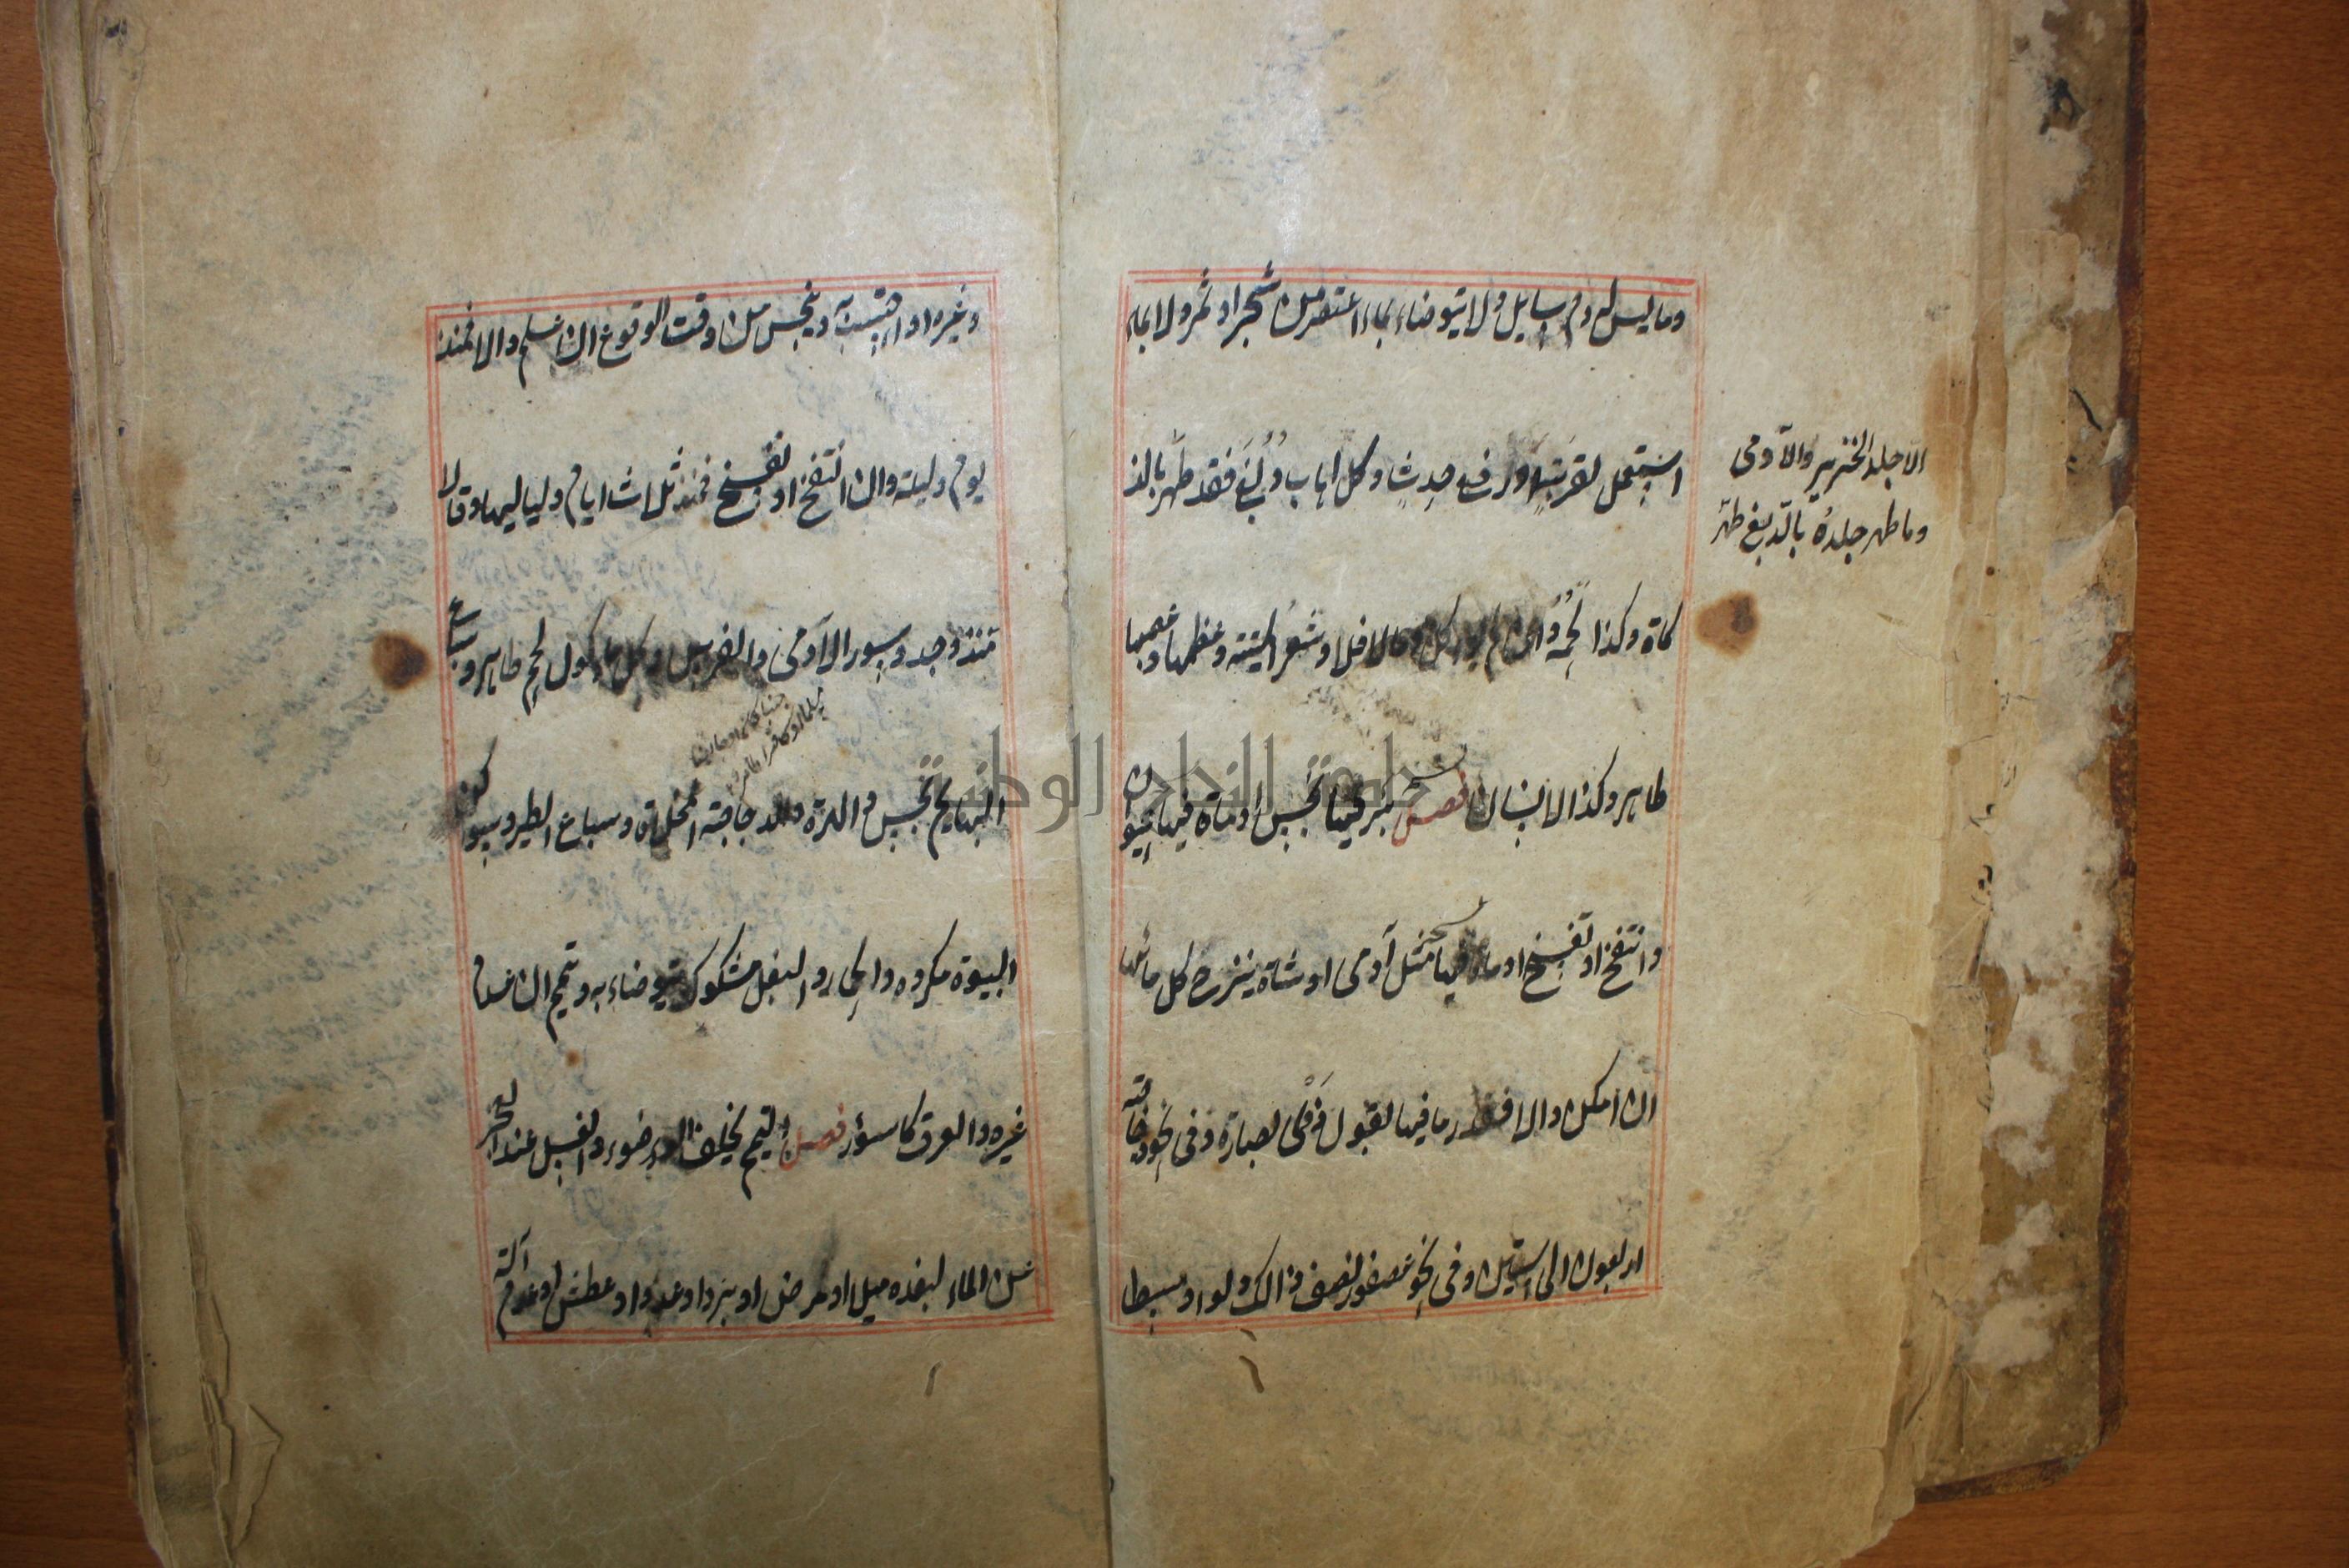 وما ليس له دم سايل ولا يتوضاء بماء اعتصر من شجر او ثمر ولا بماء
استعمل لقربة او رفع حدث وكل اهاب دبغ فقد طهر بالذ
الا جلد الخنزير والآدمى
وما طهر جلده بالدبغ طهر
كاة وكذا لحمه وان لم يوكل ومالا فلا وشعر الميتة وعظمها وعصبها
طاهر وكذا الانسان فصل بئر فيها نجس او ماة فيها حيوان
وانتفخ او تفسخ او مات فيها مثل آدمى او شاة ينزح كل مائها
ان امكن والا فقدر ما فيها لقبول ذوى بصارة وفى نحو دجاجة
اربعون الى الستين وفى نحو عصفور نصف ذالك ولو وسطا
وغيره او احتسب به وينجس من وقت الوقوع ان علم والا فمنذ
يوم وليلة وان انتفخ او تفسخ فمنذ ثلاث ايام ولياليها وقالا
منذ وجد وسور الآدمى والفرس وكل ماكول لحم طاهر وسباع
البهايم نجس والهرة والدجاجة المخلاة وسباع الطير وسواكن
البيوة مكروه والحمار والبغل مشكوك يتوضاء به وتيمم ان عدم
غيره والعرق كاسؤر فصل التيمم يخلف الوضوء والغسل عند العجز
عن الماء لبعده ميل او مرض او برد او عدو او عطش او عدم آلة
جامعة النجاح الوطنية